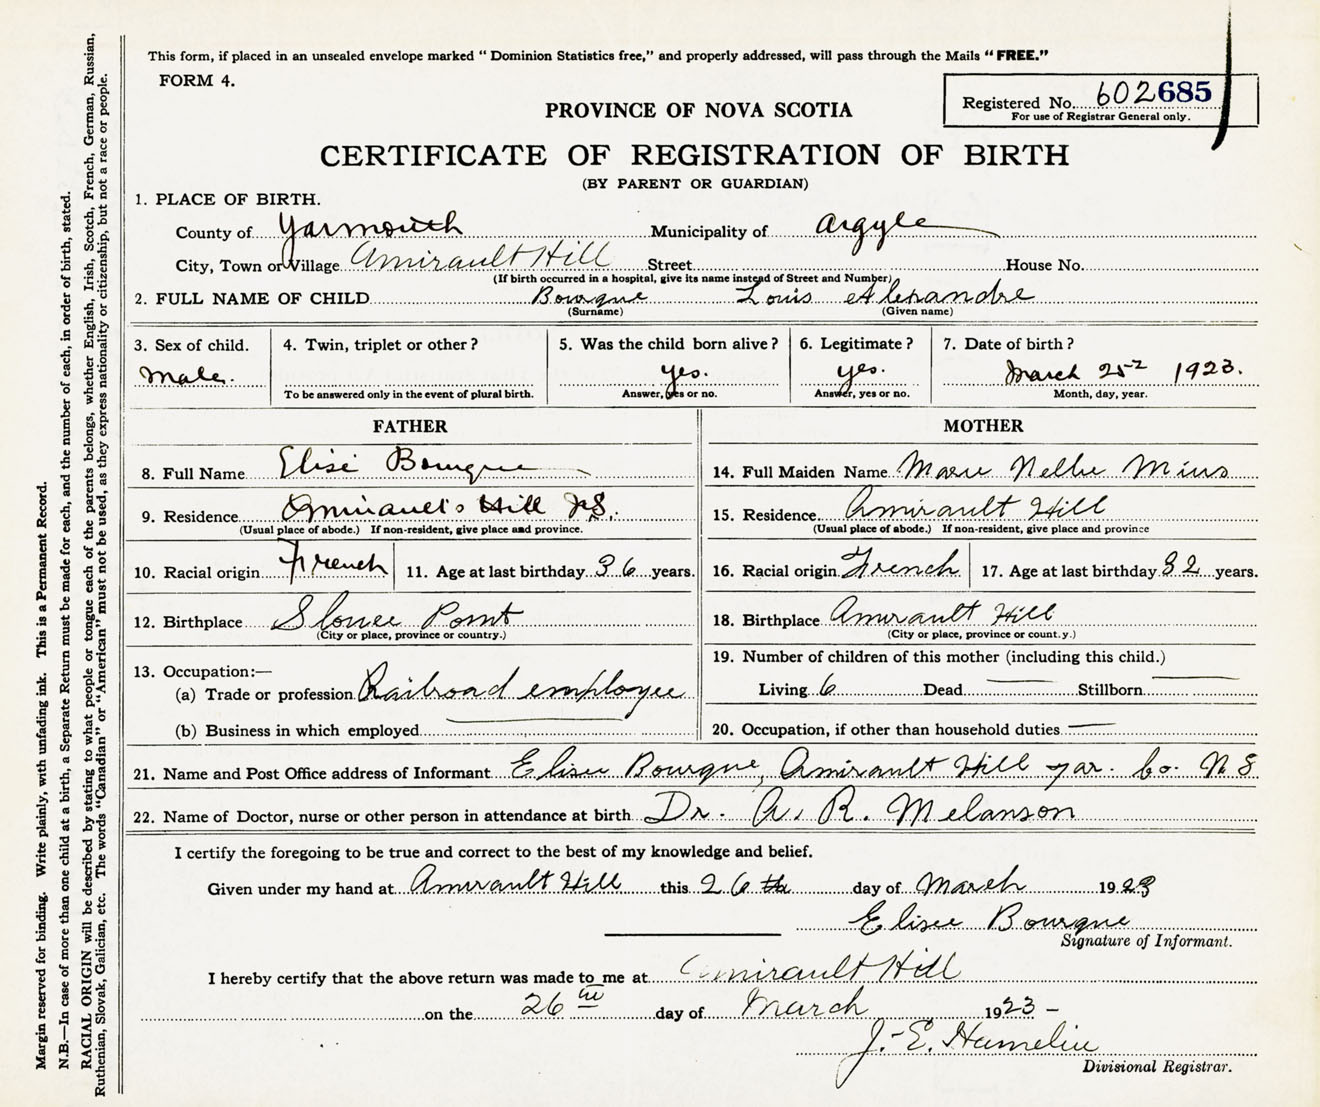 This form, if placed in an unsealed envelope marked “ Dominion Statistics free,” and properly addressed, will pass through the Mails “ FREE.”
FORM 4.
Registered No. 602685
For use of Registrar General only.
PROVINCE OF NOVA SCOTIA
CERTIFICATE OF REGISTRATION OF BIRTH
(BY PARENT OR GUARDIAN)
1. PLACE OF BIRTH.
County of Yarmouth Municipality of Argyle
City, Town or Village Amirault Hill Street House No.
(If birth occurred in a hospital, give its name instead of Street and Number)
2. FULL NAME OF CHILD Bourque Louis Alexandre
(Surname) (Given name)
3. Sex of child. 4. Twin, triplet or other ? 5. Was the child born alive ? 6. Legitimate ? 7. Date of birth ?
Male. yes. yes. March 25 1923.
To be answered only in the event of plural birth. Answer, yes or no. Answer, yes or no. Month, day, year.
FATHER MOTHER
8. Full Name Elisé Bourque 14. Full Maiden Name Marie Nellie Mius
9. Residence Amirault's Hill N.S. 15. Residence Amirault Hill
(Usual place of abode.) If non-resident, give place and province. (Usual place of abode.) If non-resident, give place and province
10. Racial origin French 11. Age at last birthday 36 years. 16. Racial origin French 17. Age at last birthday 32 years.
12. Birthplace Sluice Point 18. Birthplace Amirault Hill
(City or place, province or country.) (City or place, province or count.y.)
13. Occupation:— 19. Number of children of this mother (including this child.)
(a) Trade or profession Railroad employee Living 6 Dead — Stillborn —
(b) Business in which employed — 20. Occupation, if other than household duties —
21. Name and Post Office address of Informant Elisee Bourque, Amirault Hill Yar. Co. N S
22. Name of Doctor, nurse or other person in attendance at birth Dr. A. R. Melanson
I certify the foregoing to be true and correct to the best of my knowledge and belief.
Given under my hand at Amirault Hill this 26th day of March 1923
Elisee Bourque
Signature of Informant.
I hereby certify that the above return was made to me at Amirault Hill
on the 26th day of March 1923 –
J.-E. Hamelin
Divisional Registrar.
Margin reserved for binding. Write plainly, with unfading ink. This is a Permanent Record.
N.B.—In case of more than one child at a birth, a Separate Return must be made for each, and the number of each, in order of birth, stated.
RACIAL ORIGIN will be described by stating to what people or tongue each of the parents belongs, whether English, Irish, Scotch, French, German, Russian,
Ruthenian, Slovak, Galician, etc. The words “Canadian” or “American” must not be used, as they express nationality or citizenship, but not a race or people.